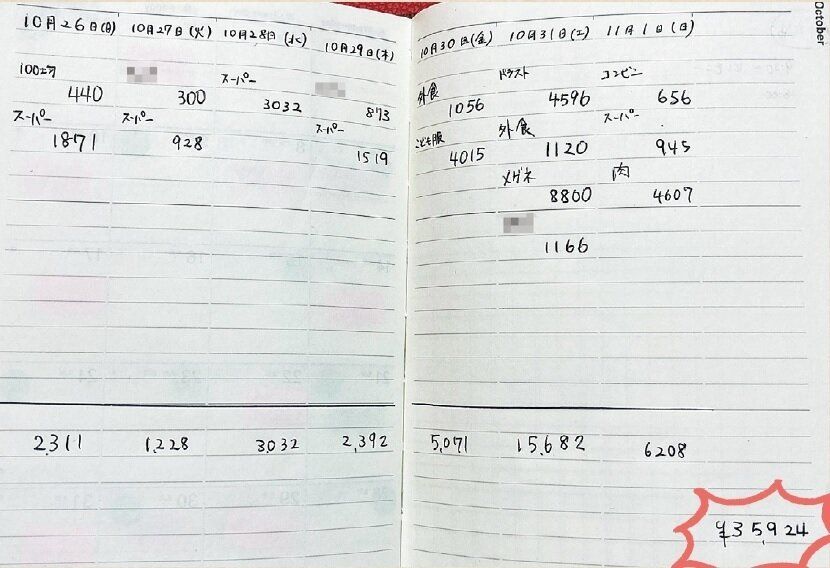 October
10月26日(月)
100エン
440
スーパー
1871
2,311
10月27日(火)
300
スーパー
928
1,228
10月28日(水)
スーパー
3032
3,032
10月29日(木)
873
スーパー
1519
2,392
10月30日(金)
外食
1056
こども服
4015
5,071
10月31日(土)
ドラスト
4596
外食
1120
メガネ
8800
1166
15,682
11月1日(日)
コンビニ
656
スーパー
945
肉
4607
6208
¥35,924